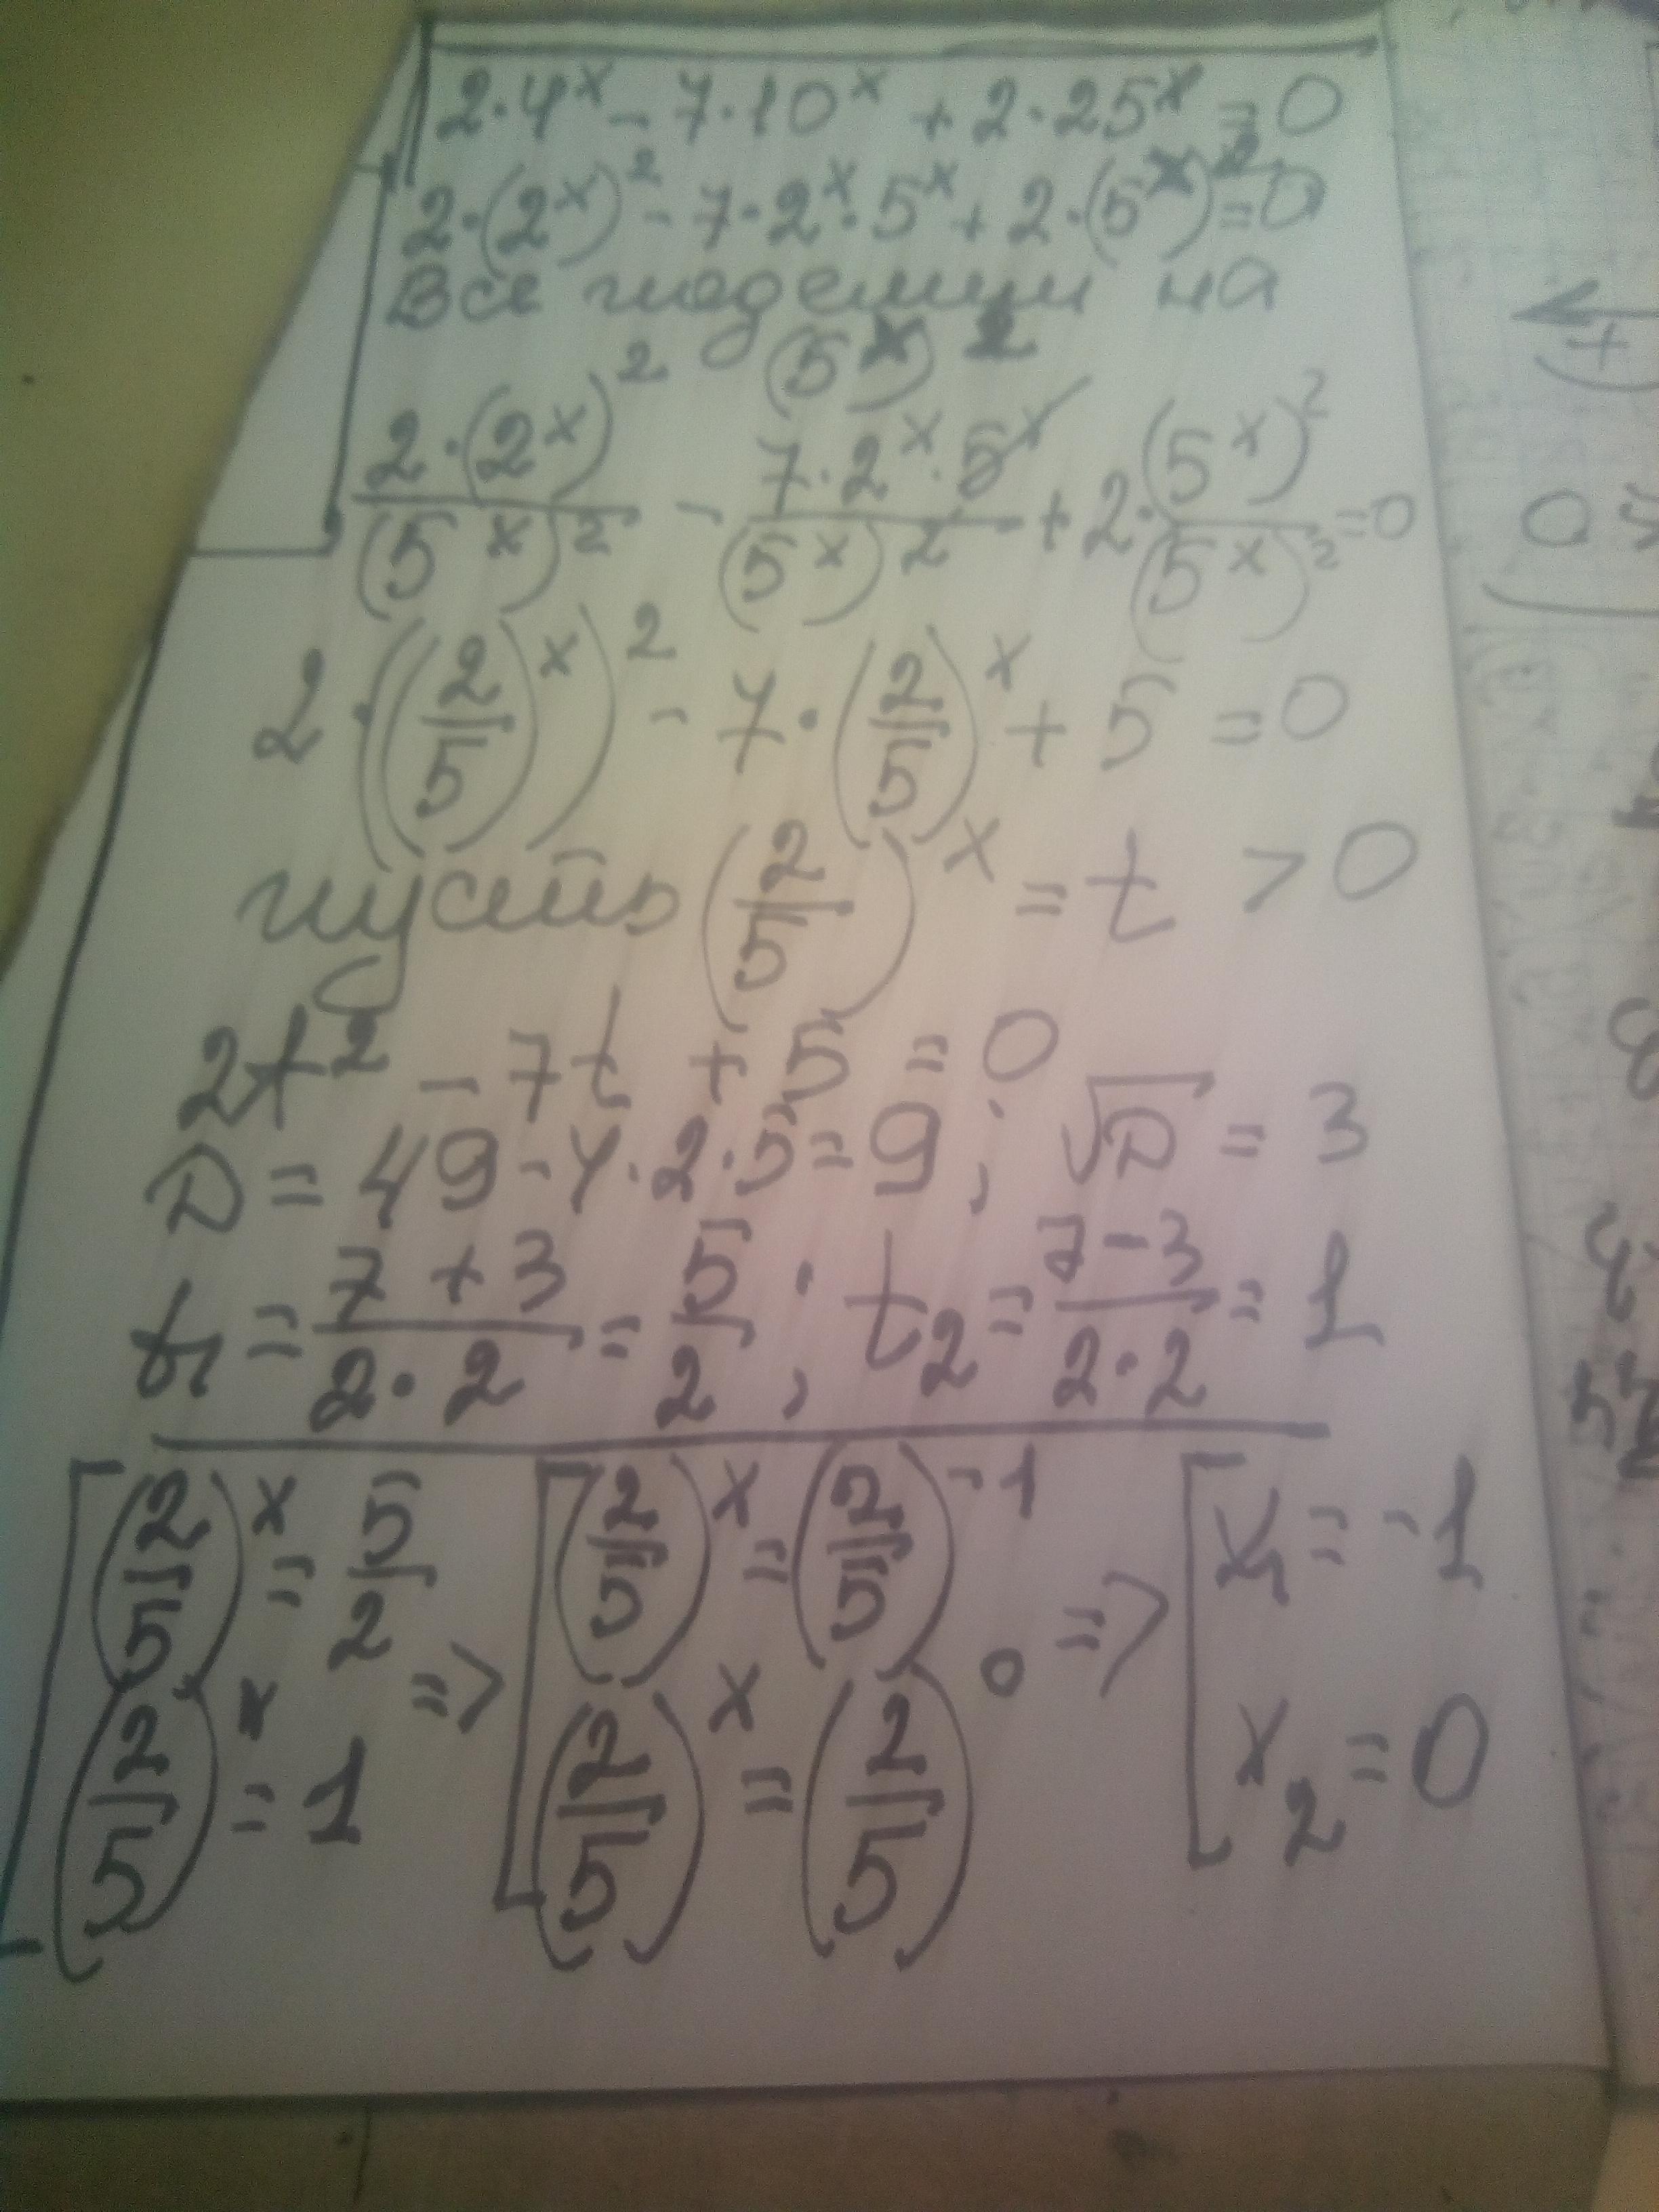 2·4^x - 7·10^x + 2·25^x = 0
2·(2^x)^2 - 7·2^x·5^x + 2·(5^x)^2 = 0
Все поделим на
(5^x)^2
2·(2^x)^2/(5^x)^2 - 7·2^x·5^x/(5^x)^2 + 2·(5^x)^2/(5^x)^2 = 0
2·((2/5)^x)^2 - 7·(2/5)^x + 5 = 0
пусть (2/5)^x = t > 0
2t^2 - 7t + 5 = 0
D = 49 - 4·2·5 = 9; √D = 3
t1 = (7+3)/(2·2) = 5/2; t2 = (7-3)/(2·2) = 1
[ (2/5)^x = 5/2 => [ (2/5)^x = (2/5)^-1 => [ x1 = -1
(2/5)^x = 1 (2/5)^x = (2/5)^0 x2 = 0